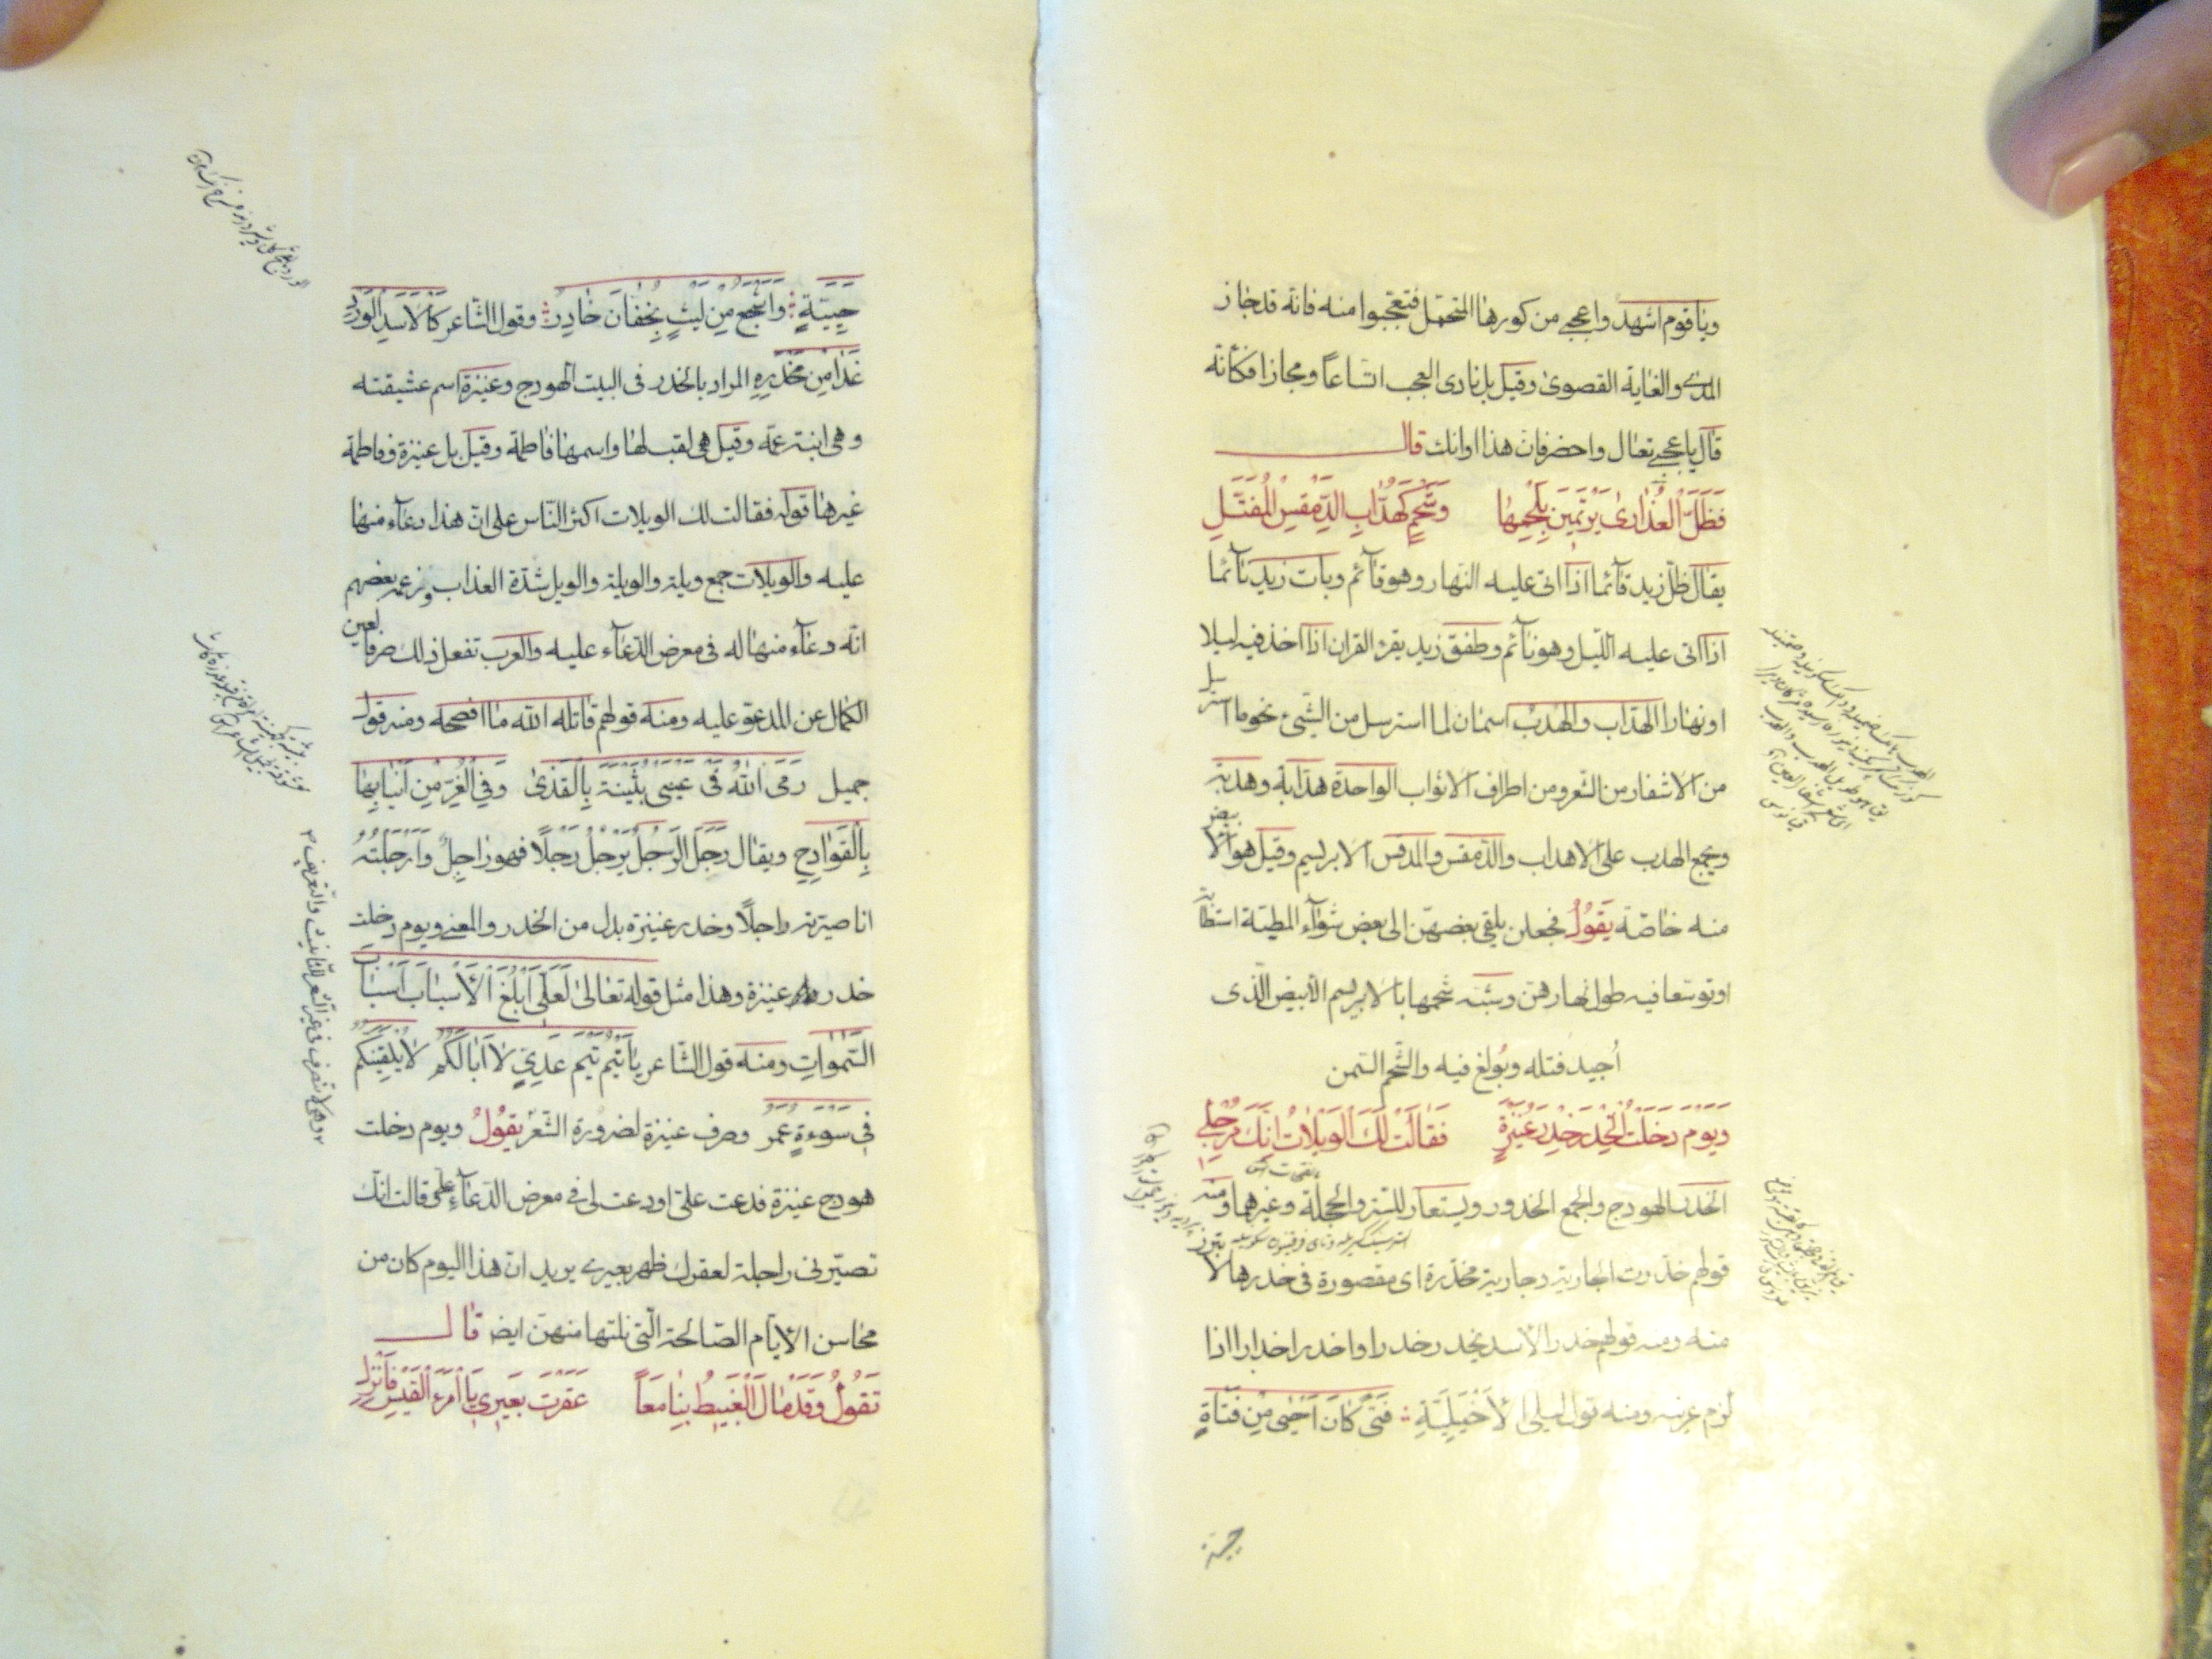 ويا قوم اشهد واعجبي من كورها المتحمل فتعجبوا منه فانه قد جاز
المدى والغاية القصوى وقيل بل نادى العجب اتساعاً ومجازا فكأنه
قال يا عجبي تعال واحضر فان هذا اوانك قال
فَظَلَّ الْعَذَارىٰ يَرْتَمِينَ بِلَحْمِهٰا وَشَحْمٍ كَهُدّٰابِ الدِّمَقْسِ الْمُفَتَّلِ
يقال ظلّ زيد قآئما اذا اتى عليه النهار وهو قآئم وبات زيد نآئما
اذا اتى عليه الليل وهو نآئم وطفق زيد يقرء القران اذا اخذ فيه ليلا
او نهارا الهدّاب والهدب اسمان لما استرسل من الشيئ نحو ما استرسل
من الاشفار من الشعر ومن اطراف الاثواب الواحدة هدّابة وهدبة
ويجمع الهدب على الاهداب والدمقس والمدقس الابريسم وقيل هو الابيض
منه خاصّة يَقُولُ فجعلن يلقى بعضهنّ الى بعض شوآء المطيّة استطابة
او توسعا فيه طول نهارهنّ وشبّه شحمها بالابريسم الابيض الّذى
اُجيد فتله وبُولغ فيه والشّحم السّمن
وَيَوْمَ دَخَلْتُ الْخِدْرَ خِدْرَ عُنَيْزَةٍ فَقٰالَتْ لَكَ الْوَيْلاٰتُ اِنَّكَ مُرْجِلِي
الخدر الهودج والجمع الخدور ويستعار للستر والحجلة وغيرهما ومنه
قولهم خدّرت الجارية وجارية مخدّرة اى مقصورة فى خدرها لا تبرز
منه ومنه قولهم خدر الاسد يخدر خدرا واخدر اخدارا اذا
لزم عرينه ومنه قول ليلى الاَخْيَلِيَّةِ فَتىً كٰانَ اَحْيىٰ مِنْ فَتٰاةٍ
حييّة
حَيِيَّةٍ وَاَشْجَعَ مِنْ لَيْثٍ بِخِفّٰانَ خٰادِرٍ وقول الشاعر كَالْاَسَدِ الْوَرْدِ
غَدٰا مِنْ مَخْدَرِهِ المراد بالخدر فى البيت الهودج وعنيزة اسم عشيقته
وهى ابنة عمّه وقيل هى لقب لها واسمها فاطمة وقيل بل عنيزة وفاطمة
غيرها قوله فقالت لك الويلات اكثر النّاس على انّ هذا دعآء منها
عليه والويلات جمع ويلة والويلة والويل شدّة العذاب وزعم بعضهم
انّه دعآء منها له فى معرض الدّعآء عليه والعرب تفعل ذلك صرفا لعين
الكمال عن المدعوّ عليه ومنه قولهم قاتله الله ما افصحه ومنه قول
جميل رَمَى اللّٰهُ فى عَيْنَيْ بُثَيْنَةَ بِالْقَذىٰ وَفِي الْغُرِّ مِنْ اَنْيٰابِهٰا
بِالْقَوٰادِحِ ويقال رَجِلَ الرَّجُلُ يَرْجَلُ رَجَلًا فهو رٰاجِلٌ وَاَرْجَلْتُهُ
انا صيرته راجلًا وخدر عنيزة بدل من الخدر والمعنى ويوم دخلت
خدر عنيزة وهذا مثل قوله تعالى لَعَلِّي اَبْلُغُ الْاَسْبٰابَ اَسْبٰابَ
السَّمٰوٰاتِ ومنه قول الشّاعر يٰا تَيْمُ تَيْمَ عَدِيٍّ لاٰ اَبٰا لَكُمُ لاٰ يُلْقِيَنَّكُمُ
فِي سَوْءَةٍ عُمَرُ وصرف عنيزة لضرورة الشّعر يَقُولُ ويوم دخلت
هودج عنيزة فدعت علىّ او دعت لى فى معرض الدّعآء علىّ قالت انك
تصيّرنى راجلة لعقرك ظهر بعيرى يريد ان هذا اليوم كان من
محاسن الايّام الصّالحة الّتى نلتها منهنّ ايضا قال
تَقُولُ وَقَدْ مٰالَ الْغَبِيطُ بِنٰا مَعاً عَقَرْتَ بَعِيرِي يَا امْرَءَ الْقَيْسِ فَانْزِلِ